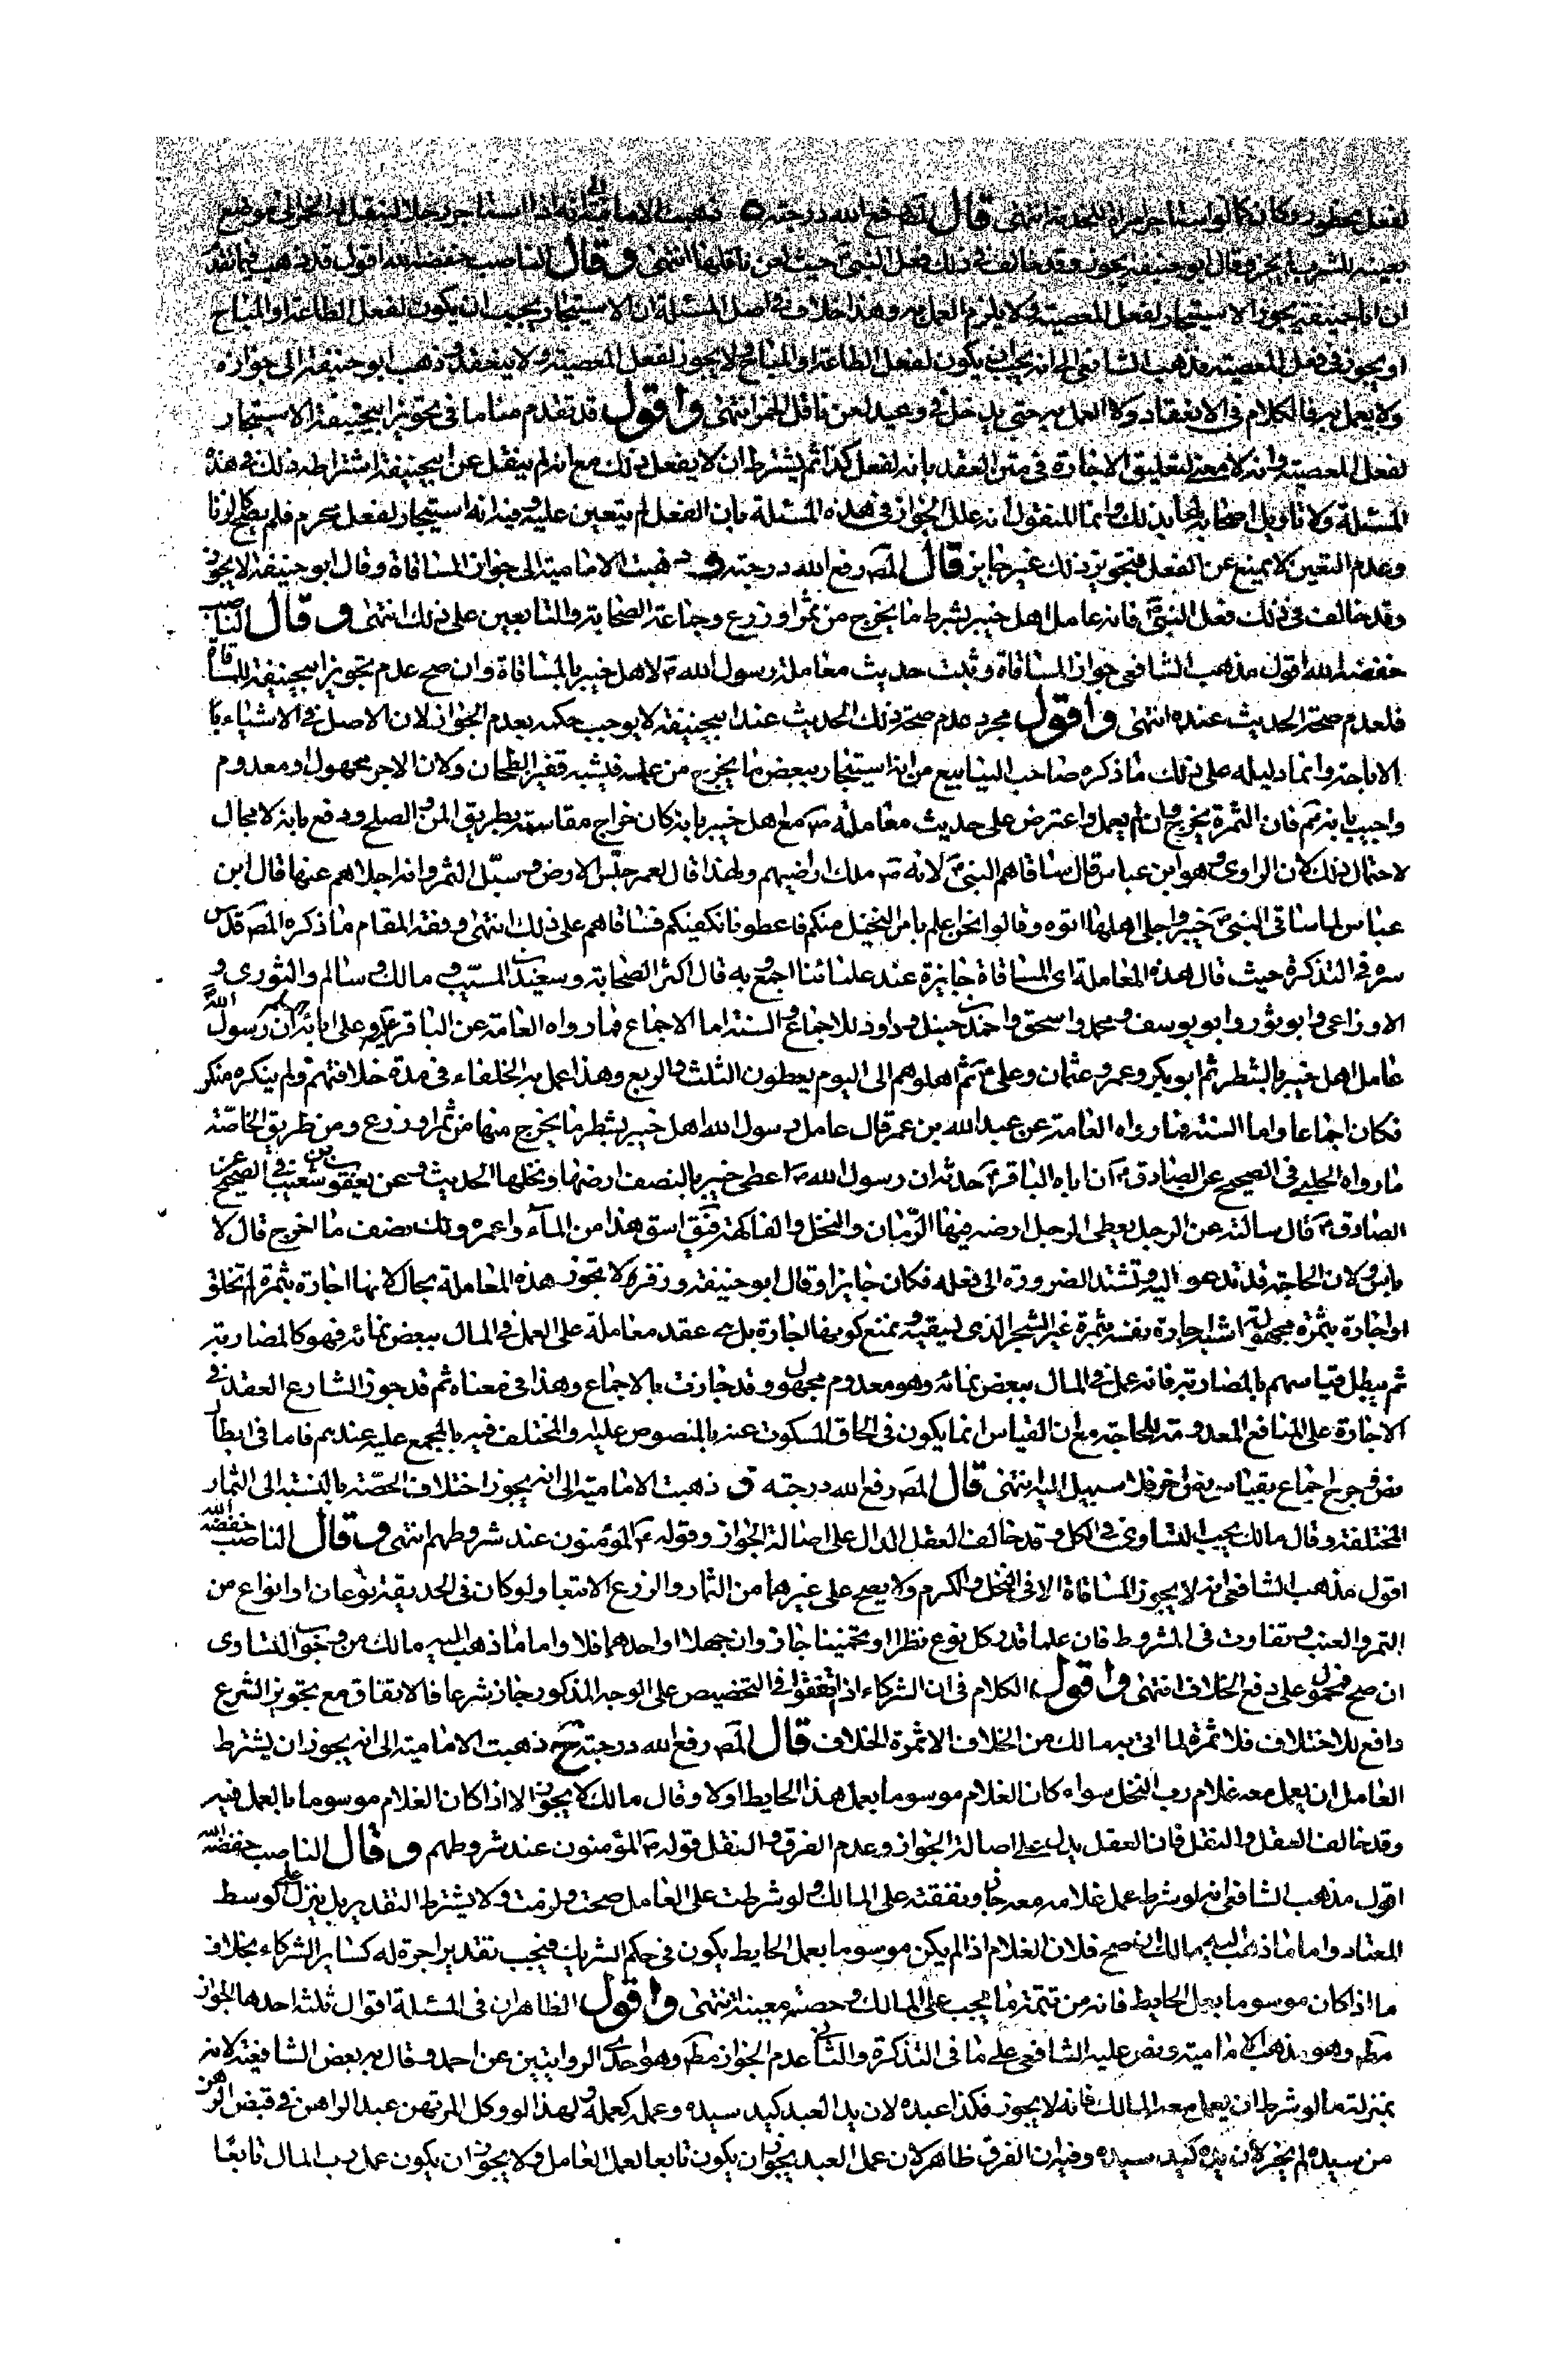 لفعل محظور وكان كما لو استاجر امراة للخدمة انتهى قال المصَ رفع الله درجته ه ذهبت الامامية الى انه اذا استاجر رجلا لينقل له الخمر الى موضع
بعينه للشرب لم يجز وقال ابو حنيفة يجوز وقد خالف في ذلك فعل النبي ص حيث لعن ناقلها انتهى وقال الناصب خفضه الله اقول قد ذهب فيما تقدم
ان ابا حنيفة يجوز الاستيجار لفعل المعصية ولا يلزم العمل به وهذا خلاف في اصل المسئلة ان الاستيجار يجب ان يكون لفعل الطاعة او المباح
او يجوز في فعل المعصية فذهب الشافعي الى انه يجب ان يكون لفعل الطاعة او المباح ولا يجوز لفعل المعصية ولا ينعقد وذهب ابو حنيفة الى جوازه
ولا يعمل به فالكلام في الانعقاد ولا العمل به حتى يدخل في وعيد لعن ناقل الخمر انتهى واقول قد تقدم منا ما في تجويز ابيحنيفة الاستيجار
لفعل المعصية وانه لا معنى لتعليق الاجارة في متن العقد بانه لفعل كذا ثم يشترط ان لا يفعل ذلك مع انه لم ينقل عن ابيحنيفة اشتراطه ذلك في هذه
المسئلة ولا تاويل اصحابه لها بذلك وانما المنقول انه علل الجواز في هذه المسئلة بان الفعل لم يتعين عليه وفيه انه استيجار لفعل محرم فلم يصح كالزنا
وعدم التعين لا يمنع عن الفعل فتجويز ذلك غير جايز قال المصَ رفع الله درجته و ذهبت الامامية الى جواز المساقاة وقال ابو حنيفة لا يجوز
وقد خالف في ذلك فعل النبي ص فانه عامل اهل خيبر بشرط ما يخرج من ثمر او زرع وجماعة الصحابة والتابعين على ذلك انتهى وقال الناصب
خفضه الله اقول مذهب الشافعي جواز المساقاة وثبت حديث معاملة رسول الله ص لاهل خيبر بالمساقاة وان صح عدم تجويز ابيحنيفة للمساقاة
فلعدم صحة الحديث عنده انتهى واقول مجرد عدم صحة ذلك الحديث عند ابيحنيفة لا يوجب حكمه بعدم الجواز لان الاصل في الاشياء با
الاباحة وانما دليله على ذلك ما ذكره صاحب الينابيع من انه استيجار ببعض ما يخرج من عمله فيشبه قفيز الطحان ولان الاجر مجهول او معدوم
واجيب بانه ثم فان الثمرة تخرج وان لم يعمل واعترض على حديث معاملته ص مع اهل خيبر بانه كان خراج مقاسمة بطريق المن والصلح ودفع بانه لا مجال
لاحتمال ذلك لان الراوي وهو ابن عباس قال ساقاهم النبي ص لانه ص ملك اراضيهم ولهذا قال لعمر حبّس الارض وسبّل الثمر وانه اجلاهم عنها قال ابن
عباس لما ساقى النبي ص خيبر واجلى اهلها اتوه وقالوا نحن اعلم بامر النخيل منكم فاعطونا نكفيكم فساقاهم على ذلك انتهى وفقه المقام ما ذكره المصَ قدس
سره في التذكرة حيث قال هذه المعاملة اى المساقاة جايزة عند علمائنا اجمع وبه قال اكثر الصحابة وسعيد بن المسيب ومالك وسالم والثوري و
الاوزاعي وابو ثور وابو يوسف ومحمد واسحق واحمد بن حنبل وداود للاجماع والسنة اما الاجماع فما رواه العامة عن الباقر عليه وعلى ابائه ان رسول الله
عامل اهل خيبر بالشطر ثم ابو بكر وعمر وعثمان وعلي ع ثم اهلوهم الى اليوم يعطون الثلث والربع وهذا عمل به الخلفاء في مدة خلافتهم ولم ينكره منكر
فكان اجماعا واما السنة فما رواه العامة عن عبد الله بن عمر قال عامل رسول الله اهل خيبر بشطر ما يخرج منها من ثمر او زرع ومن طريق الخاصّة
ما رواه الحلبي في الصحيح عن الصادق ع ان اباه الباقر ع حدثه ان رسول الله ص اعطى خيبر بالنصف ارضها ونخلها الحديث وعن يعقوب بن شعيب في الصحيح عن
الصادق ع قال سالته عن الرجل يعطى الرجل ارضه فيها الرّمان والنخل والفاكهة فيقول اسق هذا من الماء واعمره ولك نصف ما اخرج قال لا
باس ولان الحاجة قد تدعو اليه وتشتد الضرورة الى فعله فكان جايزا وقال ابو حنيفة وزفر لا تجوز هذه المعاملة بحال لانها اجارة بثمرة لم تخلق
او اجارة بثمرة مجهولة اشبه اجارة نفسه بثمرة غير الشجر الذي يسقيه ويمنع كونها اجارة بل هي عقد معاملة على العمل في المال ببعض نمائه فهو كالمضاربة
ثم يبطل قياسهم بالمضاربة فانه عمل في المال ببعض نمائه وهو معدوم مجهول وقد جازت بالاجماع وهذا في معناه ثم قد جوز الشارع العقد في
الاجارة على المنافع المعدومة للحاجة مع ان القياس انما يكون في الحاق المسكوت عنه بالمنصوص عليه والمختلف فيه بالمجمع عليه عندهم فاما في ابطال
نص وخرق اجماع بقياس نص اخر فلا سبيل اليه انتهى قال المصَ رفع الله درجته ق ذهبت الامامية الى انه يجوز اختلاف الحصّة بالنسبة الى الثمار
المختلفة وقال مالك يجب التساوي في الكل وقد خالف العقل الدال على اصالة الجواز وقوله ع المؤمنون عند شروطهم انتهى وقال الناصب خفضه الله
اقول مذهب الشافعي انه لا يجوز المساقاة الا في النخل والكرم ولا يصح على غيرهما من الثمار والزرع الا تبعا ولو كان في الحديقة نوعان او انواع من
التمر والعنب وتفاوت في المشروط فان علما قدر كل نوع نظرا او تخمينا جاز وان جهلا او احدهما فلا واما ما ذهب اليه مالك من وجوب التساوي
ان صح فمحمول على دفع الخلاف انتهى واقول الكلام في ان الشركاء اذا اتفقوا في التخصيص على الوجه المذكور جاز شرعا فالاتفاق مع تجويز الشرع
دافع للاختلاف فلا ثمرة لما اتى به مالك من الخلاف الا ثمرة الخلاف قال المصَ رفع الله درجته ح ذهبت الامامية الى انه يجوز ان يشترط
العامل ان يعمل معه غلام رب النخل سواء كان الغلام موسوما بعمل هذا الحايط او لا وقال مالك لا يجوز الا اذا كان الغلام موسوما بالعمل فيه
وقد خالف العقل والنقل فان العقل يدل على اصالة الجواز وعدم الفرق والنقل قوله ع المؤمنون عند شروطهم وقال الناصب خفضه الله
اقول مذهب الشافعي انه لو شرط عمل غلامه معه جاز ونفقته على المالك ولو شرطت على العامل صحت ولزمت ولا يشترط التقدير بل ينزل على الوسط
المعتاد واما ما ذهب اليه مالك ان صح فلان الغلام اذا لم يكن موسوما بعمل الحايط يكون في حكم الشريك فيجب تقدير اجرة له كسائر الشركاء بخلاف
ما اذا كان موسوما بعمل الحايط فانه من تتمة ما يجب على المالك وحصته معينة انتهى واقول الظاهر ان في المسئلة اقوال ثلثة احدها الجواز
مطَ وهو مذهب الامامية ونص عليه الشافعي على ما في التذكرة والثاني عدم الجواز مطَ وهو احدى الروايتين عن احمد وقال به بعض الشافعية لانه
بمنزلة ما لو شرط ان يعمل معه المالك فانه لا يجوز فكذا عبده لان يد العبد كيد سيده وعمله كعمله ولهذا لو وكل المرتهن عبد الراهن في قبض الرهن
من سيده لم يجز لان يده كيد سيده وفيه ان الفرق ظاهر لان عمل العبد يجوز ان يكون تابعا لعمل العامل ولا يجوز ان يكون عمل رب المال تابعًا